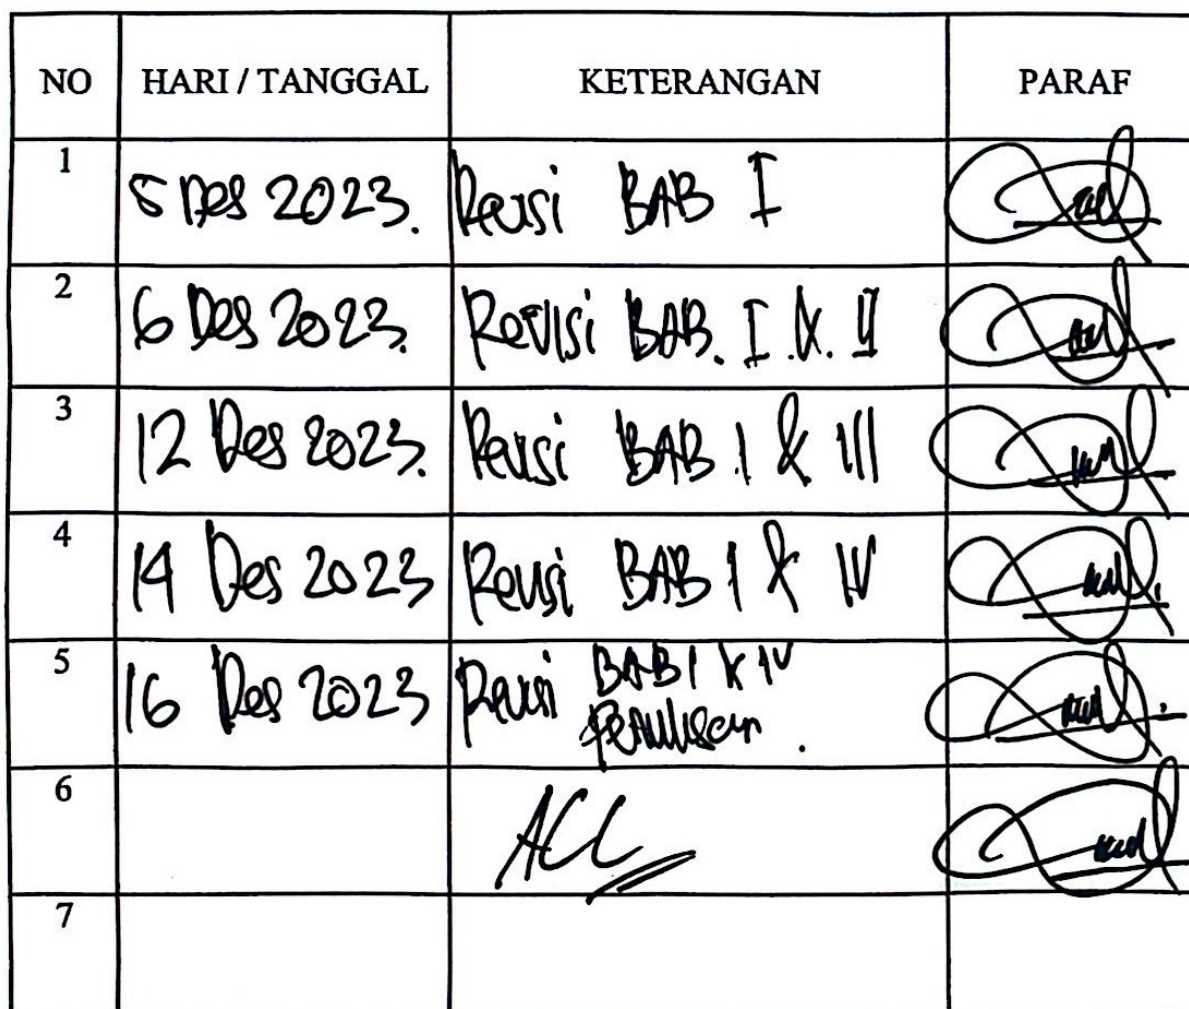 NO HARI / TANGGAL KETERANGAN PARAF
1 5 Des 2023. Revisi BAB I
2 6 Des 2023. Revisi BAB. I & II
3 12 Des 2023. Revisi BAB I & III
4 14 Des 2023 Revisi BAB I & IV
5 16 Des 2023 Revisi BAB I & IV
Penulisan.
6 ACC
7